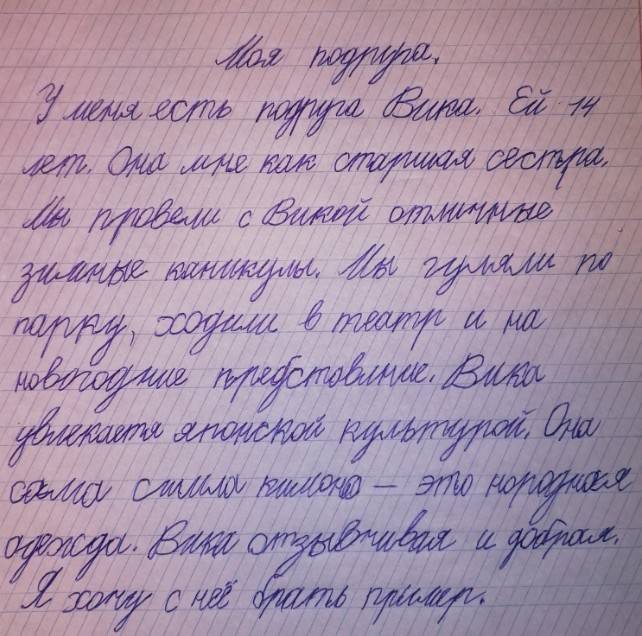 Моя подруга.
У меня есть подруга Вика. Ей 14
лет. Она мне как старшая сестра.
Мы провели с Викой отличные
зимные каникулы. Мы гуляли по
парку, ходили в театр и на
новогодние предстовление. Вика
увлекаетя японской культурой. Она
сама сшила кимоно – это нородная
одежда. Вика отзывчивая и добрая.
Я хочу с неё брать пример.